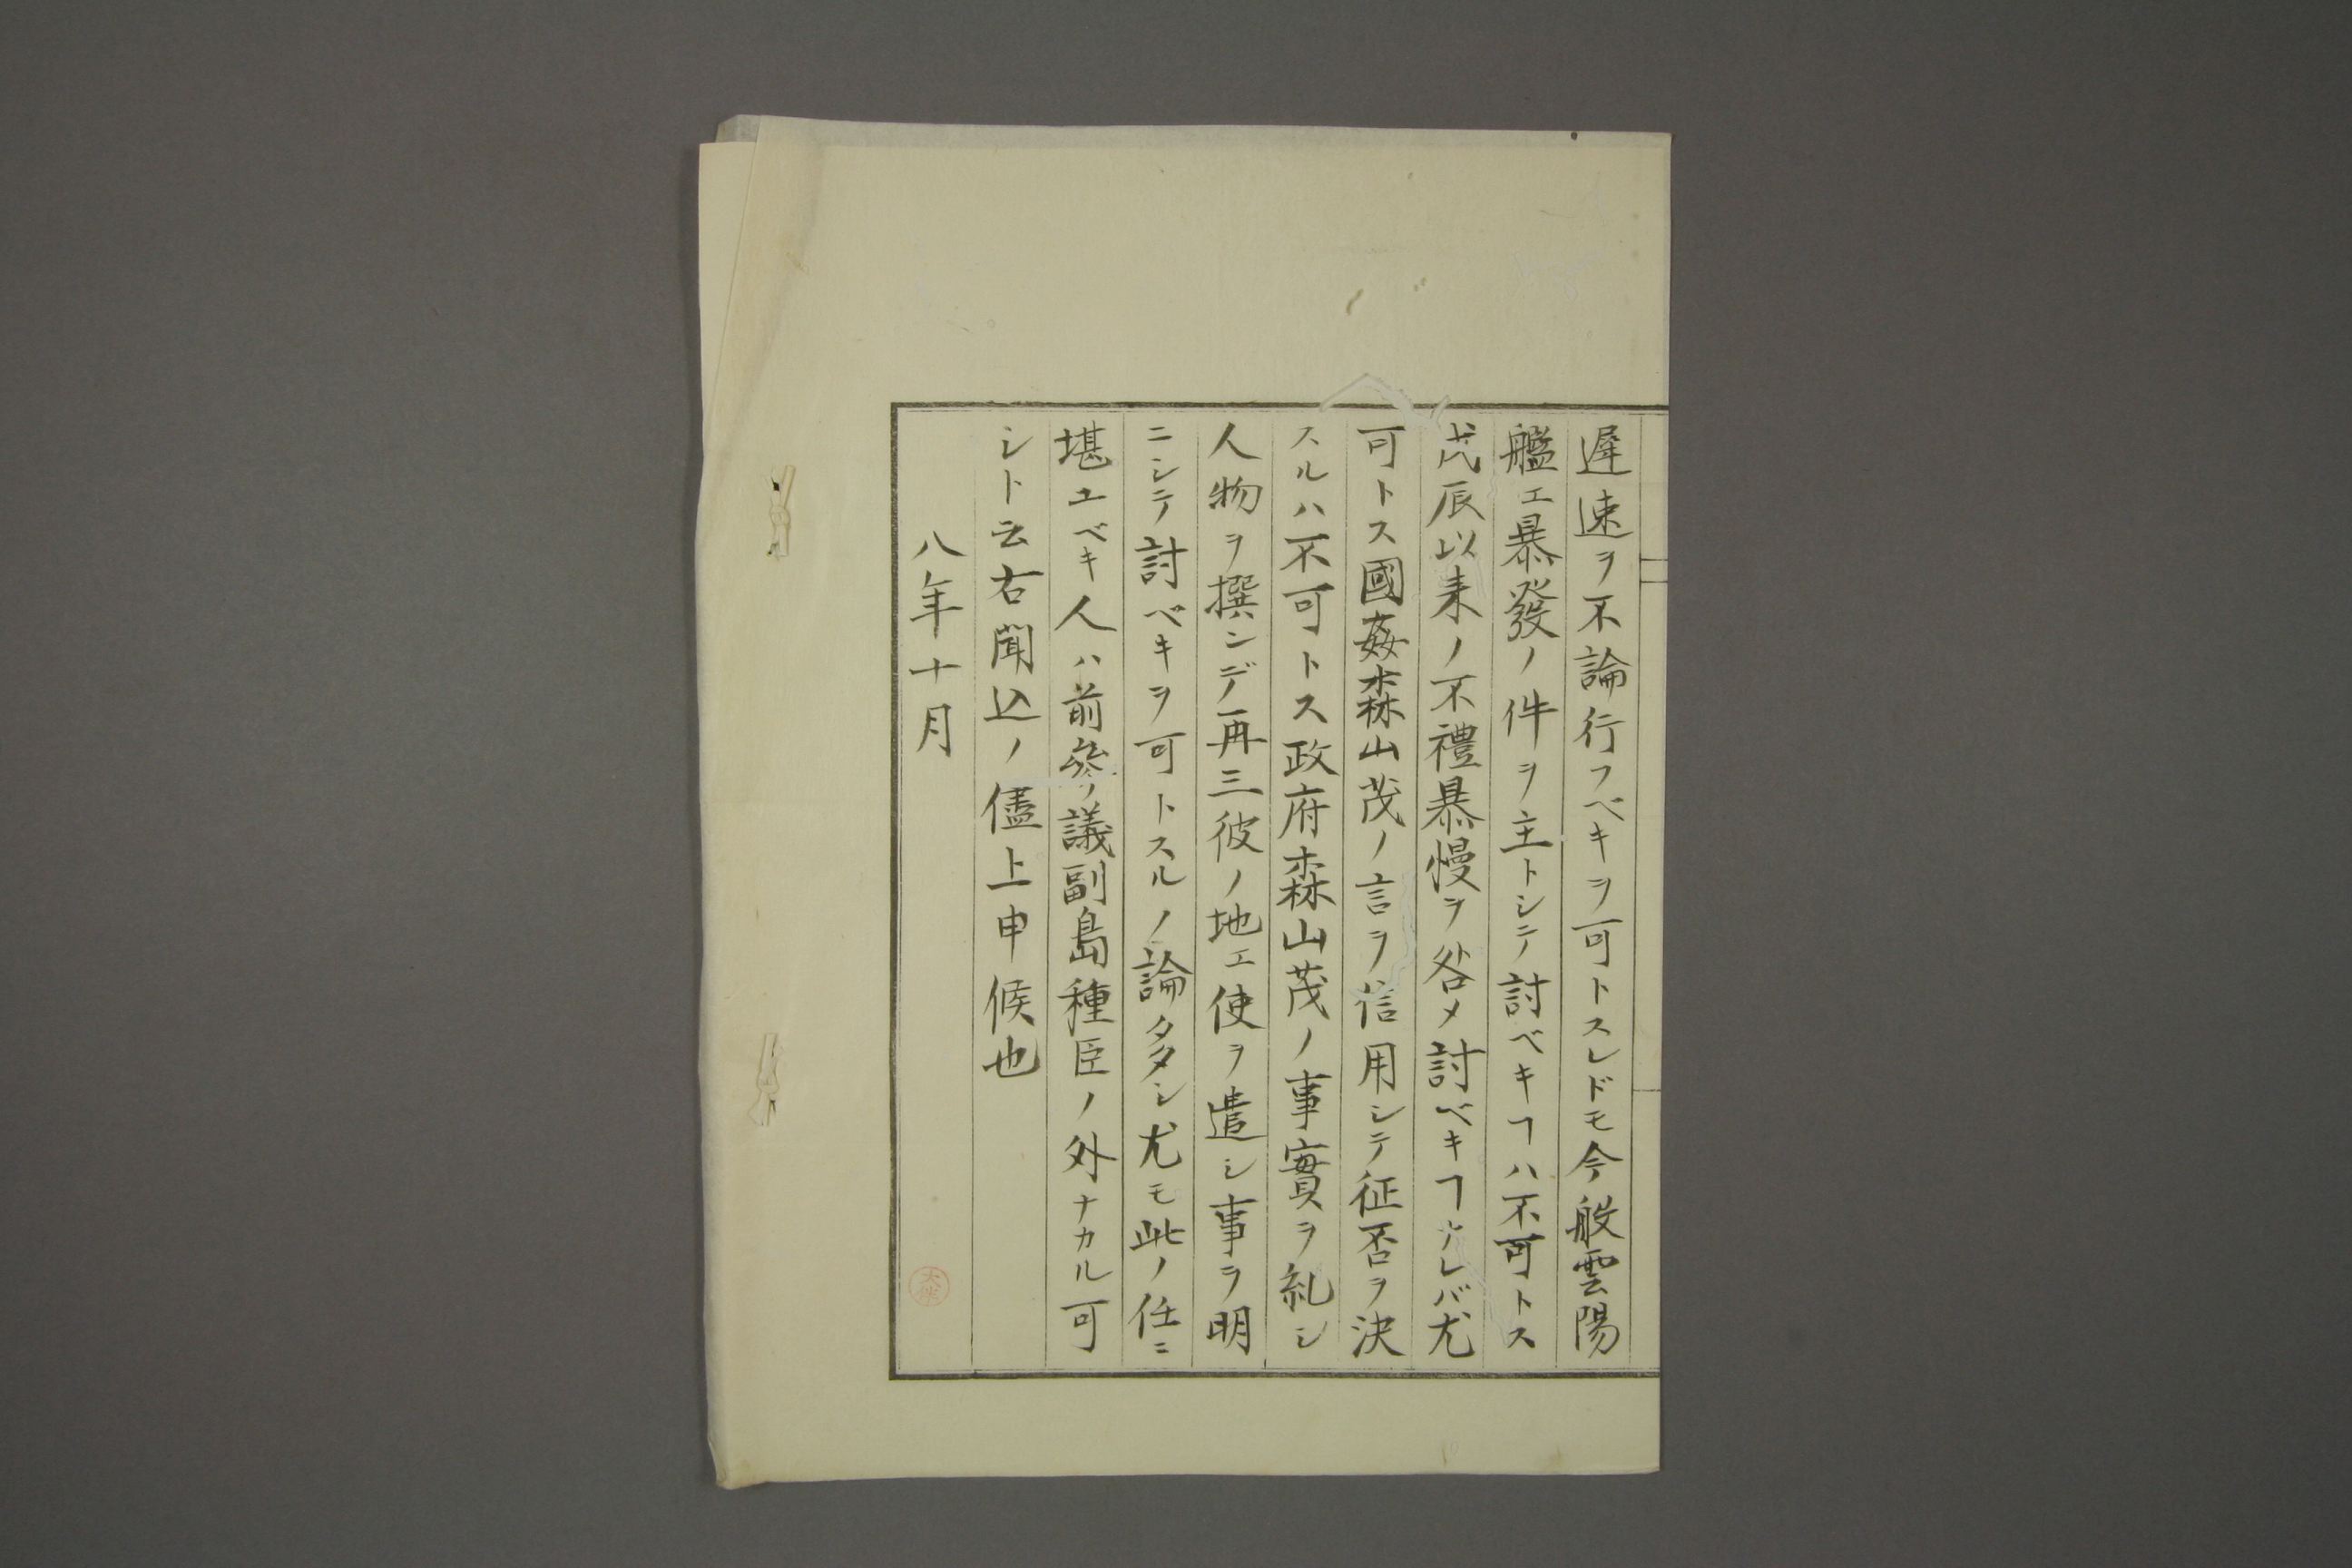 遅速ヲ不論行フベキヲ可トスレドモ今般雲陽
艦エ暴發ノ件ヲ主トシテ討ベキヿハ不可トス
戊辰以来ノ不禮暴慢ヲ咎メ討ベキヿナレバ尤
可トス國姦森山茂ノ言ヲ信用シテ征否ヲ決
スルハ不可トス政府森山茂ノ事實ヲ糺シ
人物ヲ撰ンデ再三彼ノ地エ使ヲ遣シ事ヲ明
ニシテ討ベキヲ可トスルノ論多シ尤モ此ノ任ニ
堪ユベキ人ハ前參議副島種臣ノ外ナカル可
シト云右聞込ノ儘上申候也
八年十月